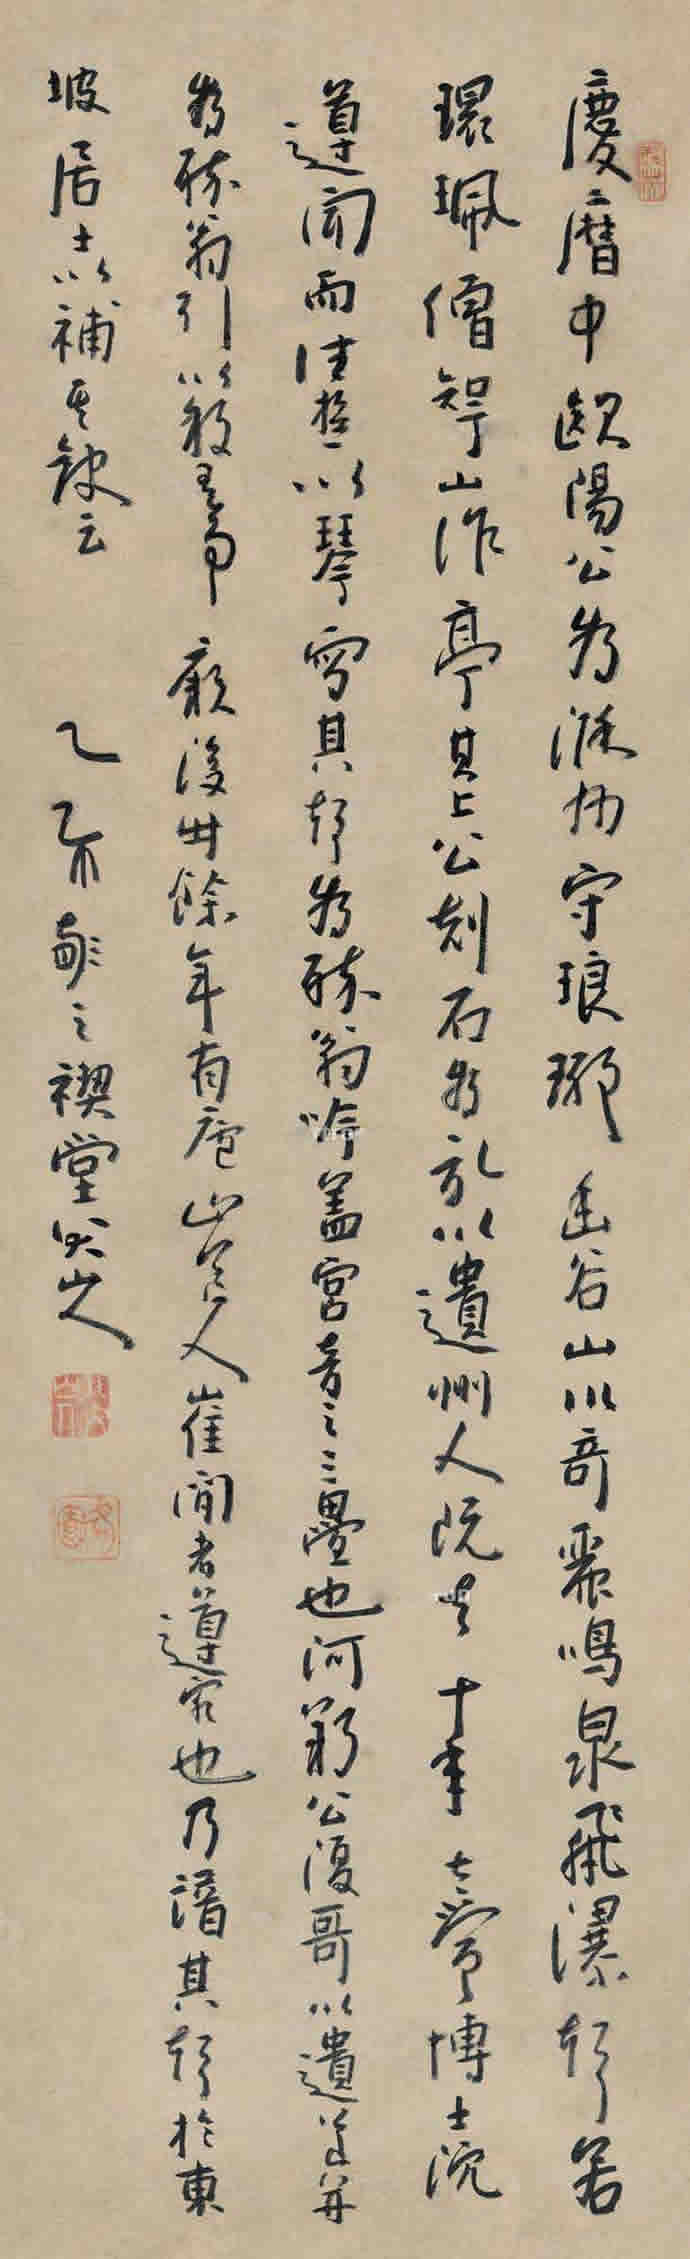 慶曆中歐陽公為滁州守琅琊幽谷山川奇麗鳴泉飛瀑聲若
環珮僧智山作亭其上公刻石為記以遺州人既去十年太常博士沈
遵聞而往以琴寫其聲為醉翁吟蓋宮音之三疊也河朔公復哥以遺遵并
為醉翁引以敘其事厥後卅餘年有廬山道人崔閒者遵客也乃譜其聲於東
坡居士以補其缺云 乙亥之禊堂八大山人